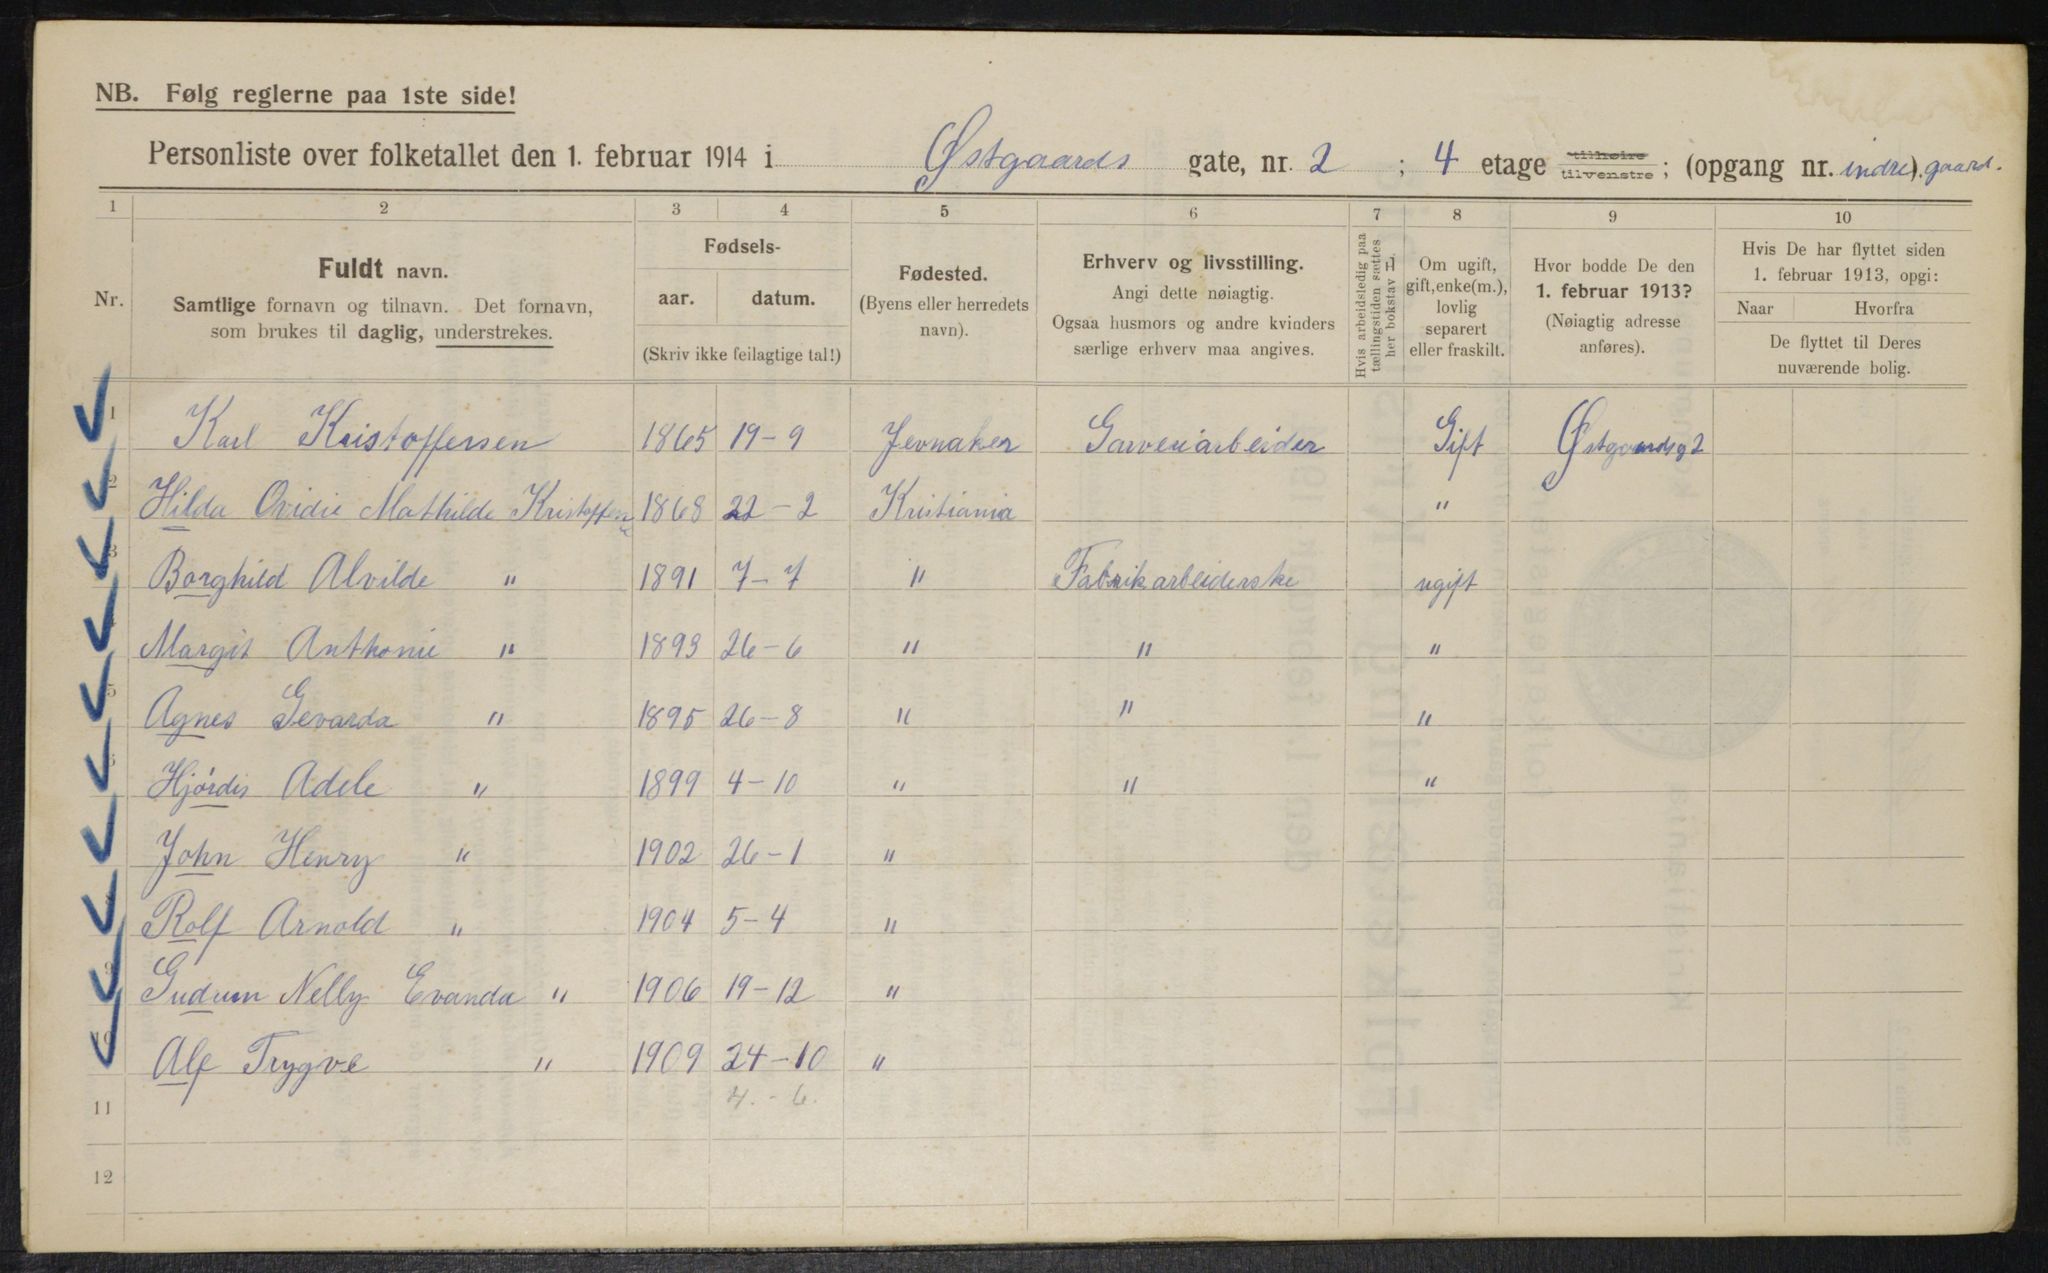 NB. Følg reglerne paa 1ste side!
Personliste over folketallet den 1. februar 1914 i Østgaards gate, nr. 2 ; 4 etage tilhøire tilvenstre ; (opgang nr. indre). gaard.
1 2 3 4 5 6 7 8 9 10
Nr.
Fuldt navn.
Samtlige fornavn og tilnavn. Det fornavn,
som brukes til daglig, understrekes.
Fødsels-
aar. datum.
(Skriv ikke feilagtige tal!)
Fødested.
(Byens eller herredets
navn).
Erhverv og livsstilling.
Angi dette nøiagtig.
Ogsaa husmors og andre kvinders
særlige erhverv maa angives.
Hvis arbeidsledig paa
tællingstiden sættes
her bokstav L.
Om ugift,
gift, enke(m.),
lovlig
separert
eller fraskilt.
Hvor bodde De den
1. februar 1913?
(Nøiagtig adresse
anføres).
Hvis De har flyttet siden
1. februar 1913, opgi:
Naar Hvorfra
De flyttet til Deres
nuværende bolig.
1 Karl Kristoffersen 1865 19-9 Jevnaker Garveriarbeider Gift Østgaardsg 2
2 Hilda Ovidie Mathilde Kristoffersen 1868 22-2 Kristiania "
3 Borghild Alvilde " 1891 7-7 " Fabrikarbeiderske ugift
4 Margit Anthonie " 1893 26-6 " " "
5 Agnes Gevarda " 1895 26-8 " " "
6 Hjördis Adele " 1899 4-10 " " "
John Henry " 1902 26-1 "
Rolf Arnold " 1904 5-4 "
9 Gudrun Nelly Evanda " 1906 19-12 "
10 Alf Trygve " 1909 24-10 "
11 4.-6.
12